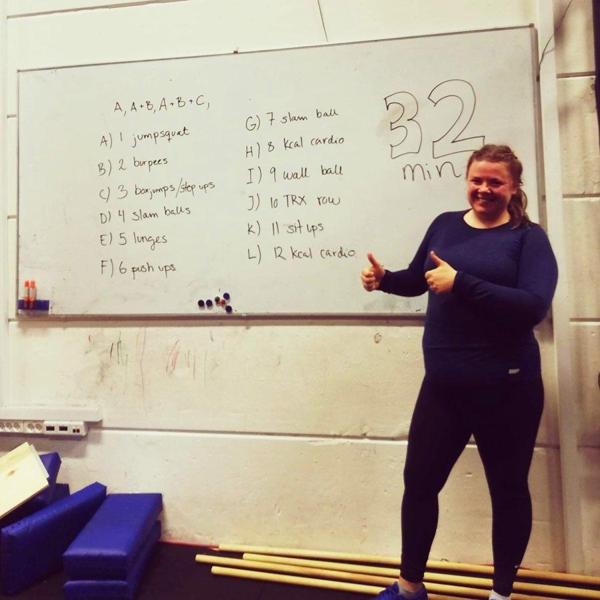 A, A+B, A+B+C,
A) 1 jumpsquat
B) 2 burpees
C) 3 boxjumps/step ups
D) 4 slam balls
E) 5 lunges
F) 6 push ups
G) 7 slam ball
H) 8 kcal cardio
I) 9 wall ball
J) 10 TRX row
K) 11 sit ups
L) 12 kcal cardio
32
min